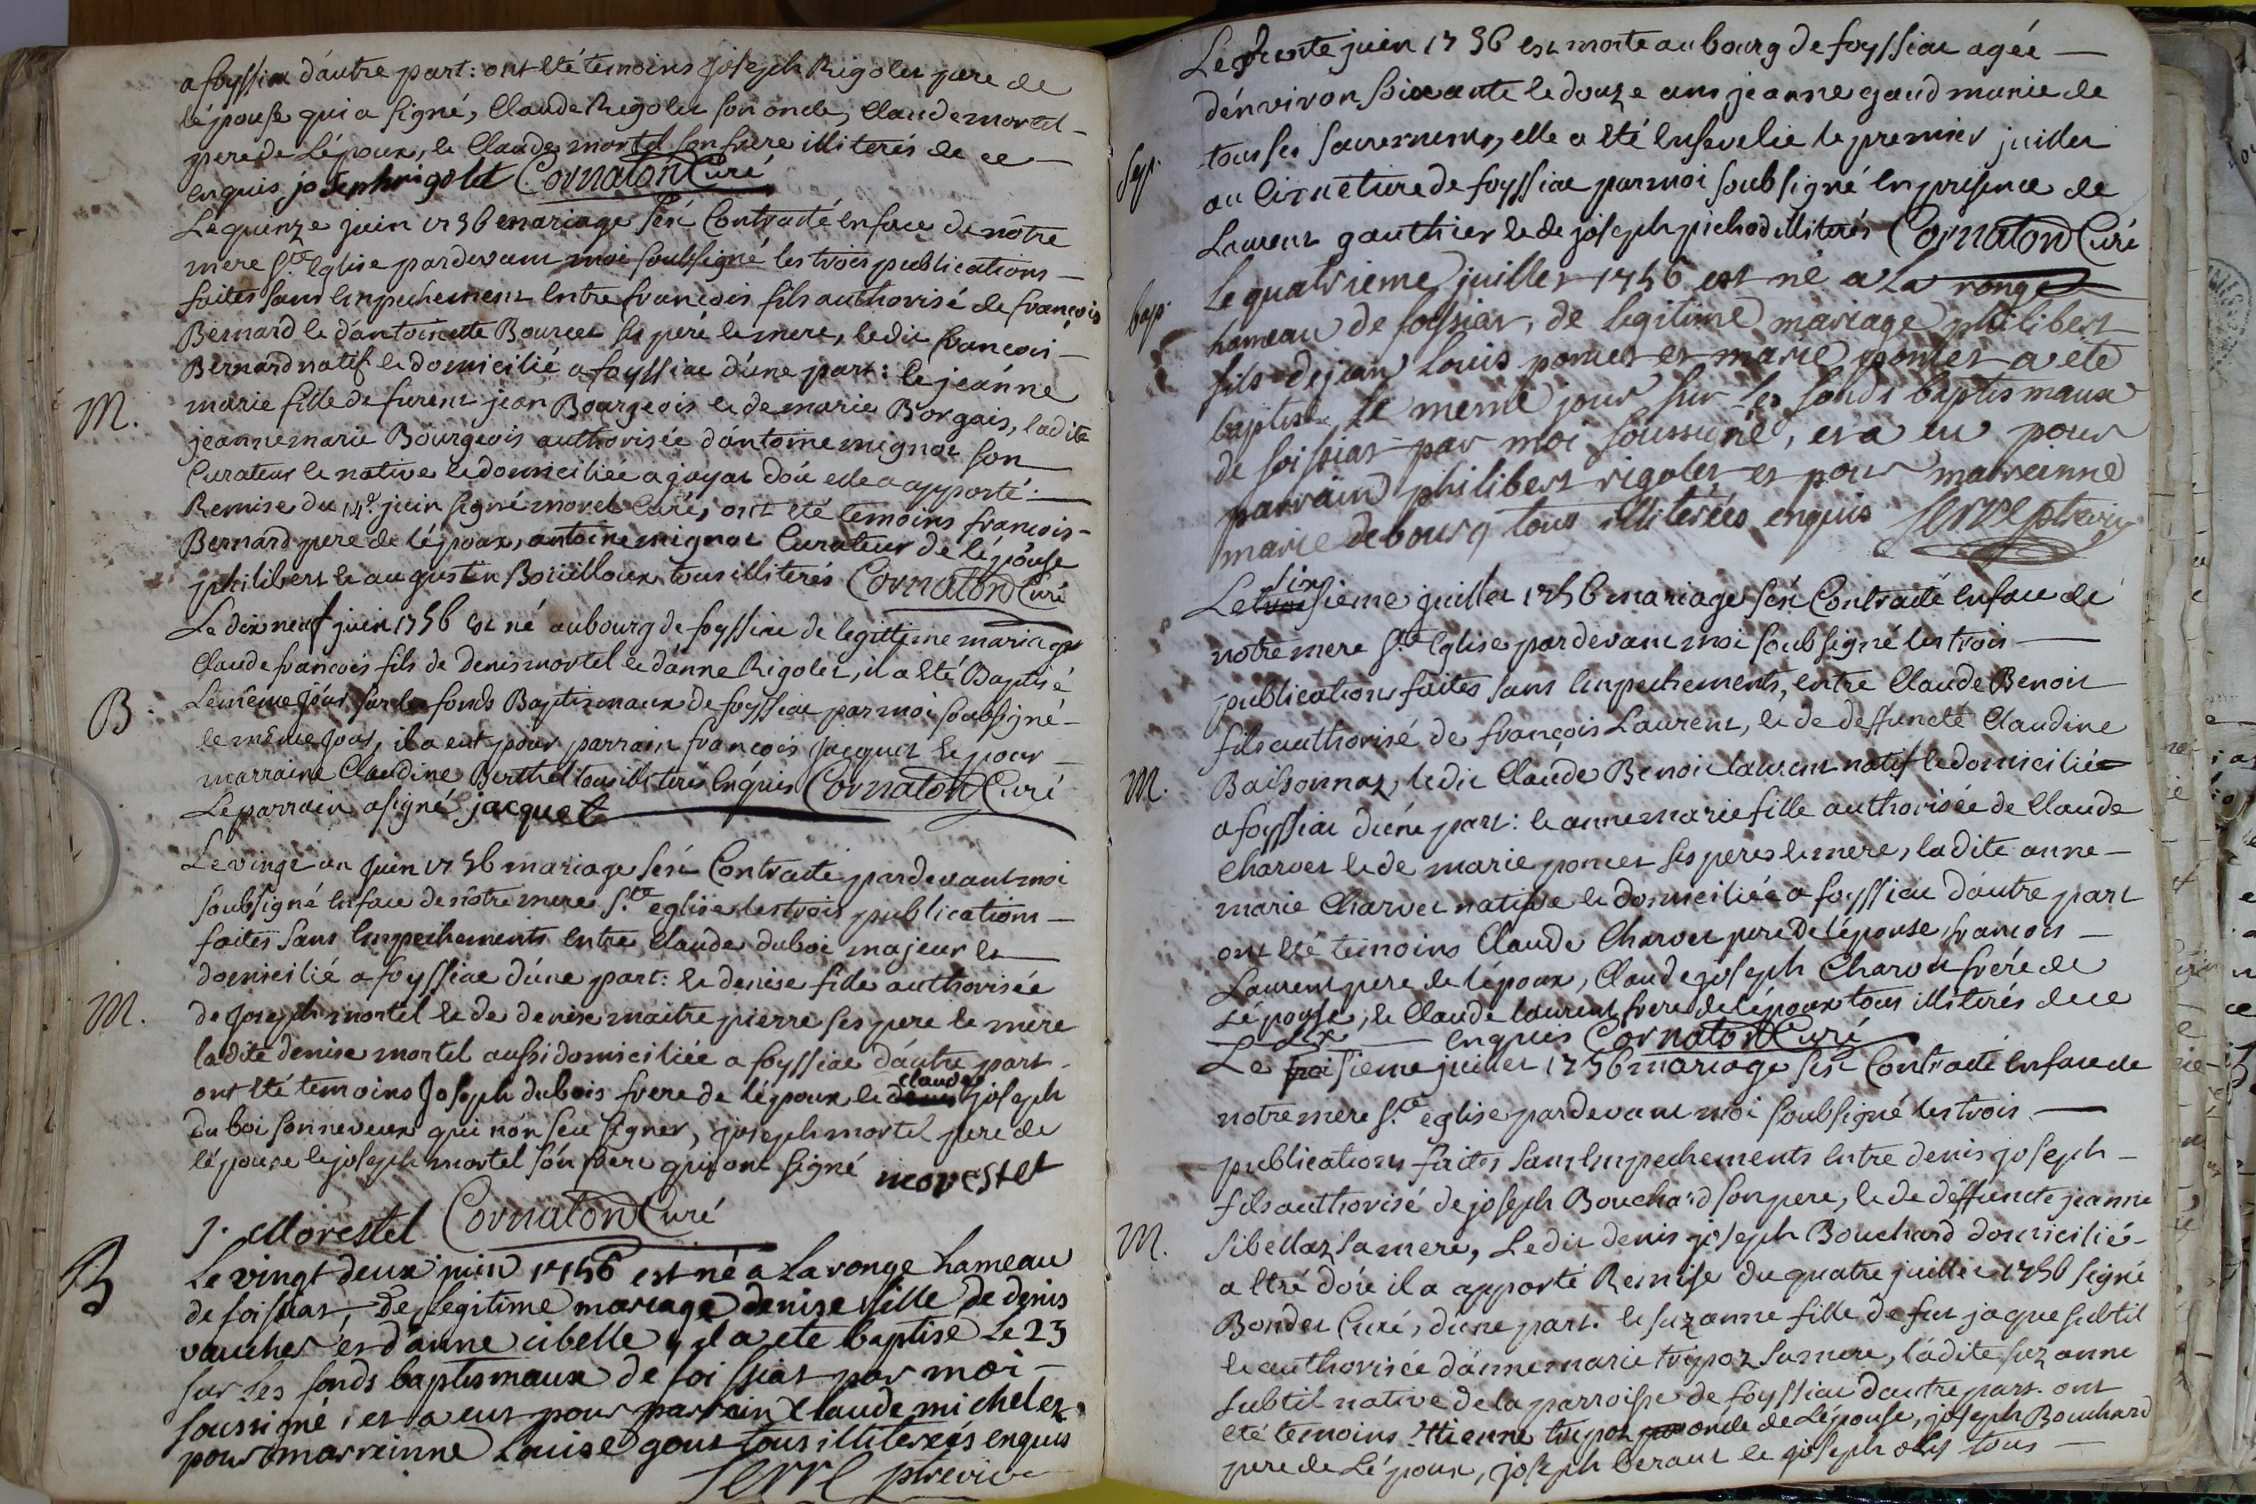 a foyssia d'autre part: ont été temoins Joseph Rigolet pere de
l'épouse qui a signé, Claude Rigolet son oncle, Claude mortel
pere de l'époux, et Claude mortel son frere illiterés de ce
enquis joseph rigolet Cornaton Curé
Le quinze juin 1756 mariage s'est Contracté en face de nôtre
mere Ste Eglise pardevant moi soubsigné les trois publications
faites sans Empechement Entre francois fils authorisé de francois
Bernard et d'antoinette Bourcet ses pere et mere, ledit francois
Bernard natif et domicilié a foyssiac d'une part: et jeanne
M.
marie fille de furent jean Bourgeois et de marie Borgais, ladite
jeanne marie Bourgeois authorisée d'antoine mignot son
Curateur et native et domiciliée a jayat d'où elle a apporté
Remise du 14e juin signé morel Curé, ont été temoins francois
Bernard pere de l'époux, antoine mignot Curateur de l'épouse
philibert et augustin Boüilloux tous illiterés Cornaton Curé
Le dix neuf juin 1756 est né au bourg de foyssiac de legittime mariage
Claude francois fils de denis mortel et d'anne Rigolet, il a été Baptisé
B.
le même jour sur les fonds Baptismaux de foyssiac par moi soubsigné
le même jour, il a eut pour parrain francois Jacquet et pour
marraine Claudine Berthet tous illiterés Enquis Cornaton Curé
Le parrain a signé jacquet
Le vingt un Juin 1756 mariage s'est Contracté pardevant moi
soubsigné en face de nôtre mere Ste eglise les trois publications
faites sans Empechements Entre Claude duboi majeur et
domicilié a foyssiac d'une part: et denise fille authorisée
M.
de Joseph mortel et de denise maitre pierre ses pere et mere
ladite denise mortel aussi domiciliée a foyssiac d'autre part
ont été temoins Joseph dubois frere de l'époux et claude joseph
duboi son neveux qui n'on seu signer, joseph mortel pere de
l'épouse et joseph mortel son frere qui ont signé morestel
J. Morestel Cornaton Curé
B
Le vingt deux juin 1756 est né a La ronge hameau
de foissiat, De legitime mariage denise fille de denis
vaucher et d'anne cibelle, il a ete baptisé Le 23
sur Les fonds baptismaux de foissiat par moi
soussigné, et a eut pour parrain Claude michel et
pour marreinne Louise gout tous illiterées enquis
Serre ptrevicre
Le trente juin 1756 est morte au bourg de foyssiac agée
d'énviron soixante et douze ans jeanne gaud munie de
Sep.
tous ses sacrements, elle a été Ensevelie le premier juillet
au Cimetiere de foyssiac par moi soubsigné En presence de
Laurent gauthier et de joseph pichod illiterés Cornaton Curé
bap.
Le quatrieme juillet 1756 est né a La ronge
hameau de foissiat, de legitime mariage philibert
fils de jean Louis poncet et marie poncet a été
baptisé le meme jour sur Les fonds baptismaux
de foissiat par moi soussigné, et a eu pour
parrain philibert rigolet et pour marreinne
marie debourg tous illiterées enquis Serre ptrevic
Le sixsieme juillet 1756 mariage s'est Contracté en face de
notre mere Ste Eglise pardevant moi soubsigné les trois
publication faites sans Empechements, entre Claude Benoit
fils authorisé de françois Laurent, et de deffuncté Claudine
M.
Baisonnaz, ledit Claude Benoit laurent natif et domicilié
a foyssiac d'une part: et anne marie fille authorisée de Claude
Charvet et de marie poncet ses peres et mere, ladite anne
marie Charvet native et domiciliée a foyssiac d'autre part
ont été temoins Claude Charvet pere de l'épouse, francois
Laurent pere de l'époux, Claude joseph Charvet frere de
L'épouse, et Claude laurent frere de l'époux tous illiterés de ce
enquis Cornaton Curé
Le sixsieme juillet 1756 mariage s'est Contracté en face de
notre mere Ste eglise pardevant moi soubsigné les trois
publications faites sans Empechements Entre denis joseph
fils authorisé de joseph Bouchard son pere, et de déffuncte jeanne
M.
sibellaz sa mere, Ledit denis joseph Bouchard domicilié
a Etré d'où il a apporté Remise du quatre juillet 1756 signé
Bondet Curé, d'une part. et suzanne fille de fut jaque subtil
et authorisée d'anne marie tripoz sa mere, ladite suzanne
subtil native de la parroisse de foyssiac d'autre part. ont
été temoins Ettienne tripoz oncle de L'épouse, joseph Bouchard
pere de L'époux, joseph beraut et joseph oly tous